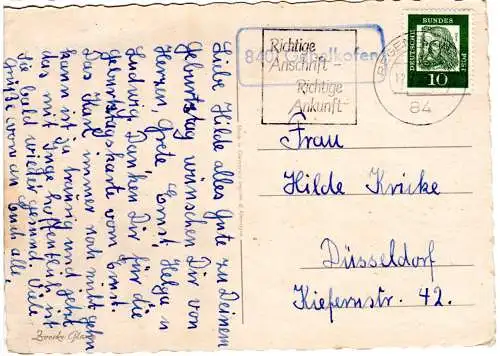 Liebe Hilde alles Gute zu Deinem
Geburtstag wünschen Dir von
Herzen, Grete, Ernst, Helga u
Ludwig, Denken Dir für die
Geburtstagskarte vom Ernst.
Das Karl immer noch nicht gehen
kann ist ja traurig und jetzt
das mit Inge hoffentlich ist
sie bald wieder gesund. Viele
Grüße von an Euch alle,
Richtige
Anschrift -
Richtige
Ankunft -
840 Oberelkofen
84
DEUTSCHE
BUNDES
POST
10
Frau
Hilde Kricke
Düsseldorf
Kiefernstr. 42.